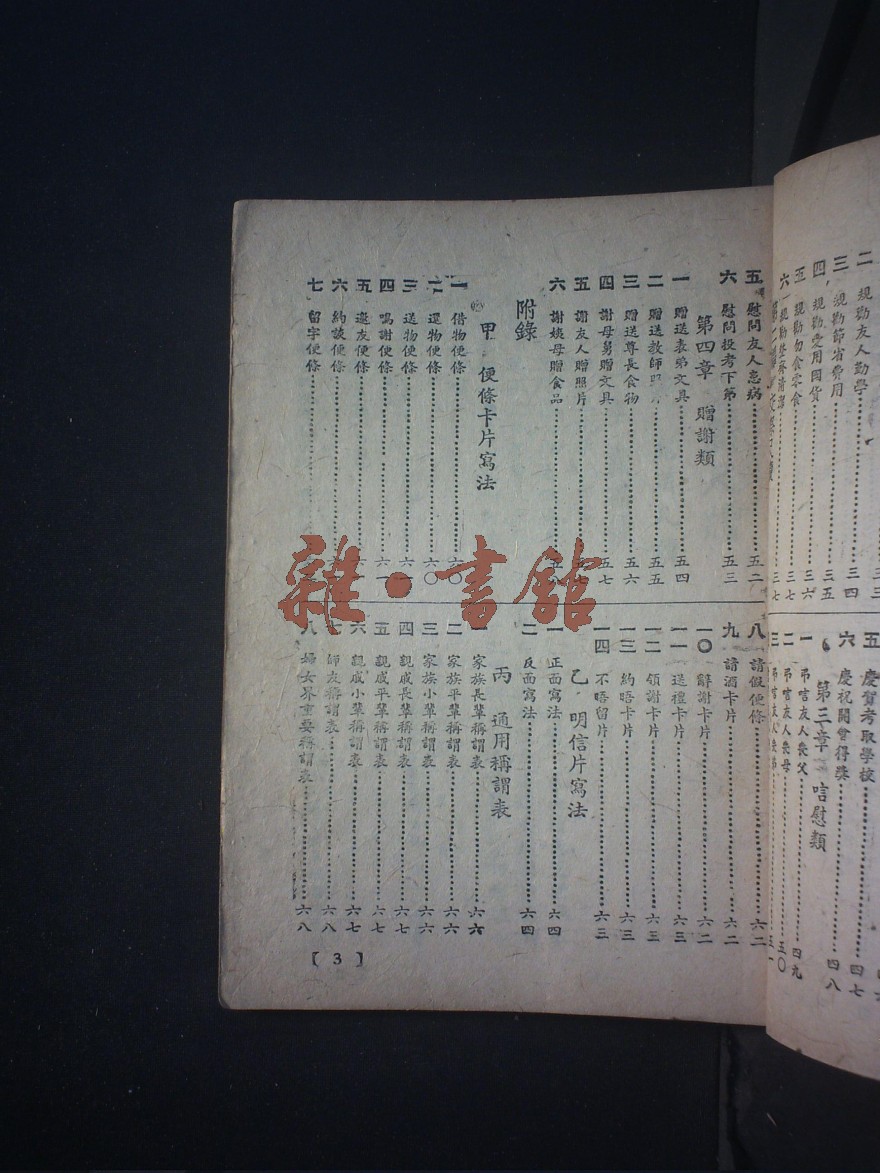 二 規勸友人勤學……三三
三 規勸節省費用……三四
四 規勸愛用國貨……三五
五 規勸勿食零食……三六
六 規勸整齊清潔……三七
五 慶賀考取學校……四七
六 慶祝開會得獎……四八
第三章 唁慰類
一 弔唁友人喪父……四九
二 弔唁友人喪母……五〇
三 弔唁友人喪弟……五一
五 慰問友人患病……五二
六 慰問投考下第……五三
第四章 贈謝類
一 贈送表弟文具……五四
二 贈送教師……五五
三 贈送尊長食物……五六
四 謝母舅贈文具……五七
五 謝友人贈照片……五七
六 謝姨母贈食品
附錄
甲 便條卡片寫法
一 借物便條……六〇
二 還物便條……六〇
三 送物便條……六一
四 鳴謝便條……六一
五 邀友便條
六 約談便條
七 留字便條
八 請假便條……六二
九 請酒卡片……六二
一〇 辭謝卡片……六二
一一 送禮卡片……六三
一二 領謝卡片……六三
一三 約晤卡片……六三
一四 不晤留片……六三
乙 明信片寫法
一 正面寫法……六四
二 反面寫法……六四
丙 通用稱謂表
一 家族長輩稱謂表……六六
二 家族平輩稱謂表……六六
三 家族小輩稱謂表……六六
四 親戚長輩稱謂表……六七
五 親戚平輩稱謂表……六七
六 親戚小輩稱謂表……六七
七 師友稱謂表……六八
八 婦女界重要稱謂表……六八
[ 3 ]
雜·書館